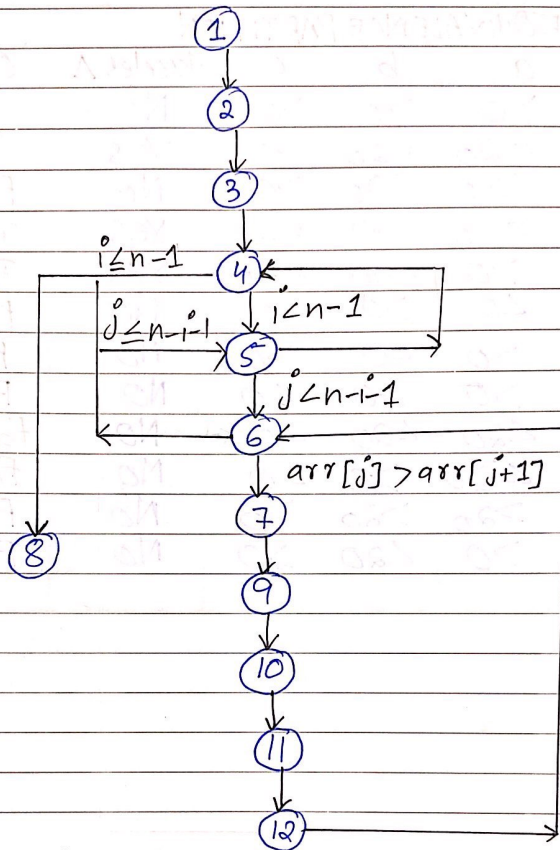 1
2
3
i≤n-1
4
i<n-1
j≤n-i-1
5
j<n-i-1
6
arr[j]>arr[j+1]
7
8
9
10
11
12